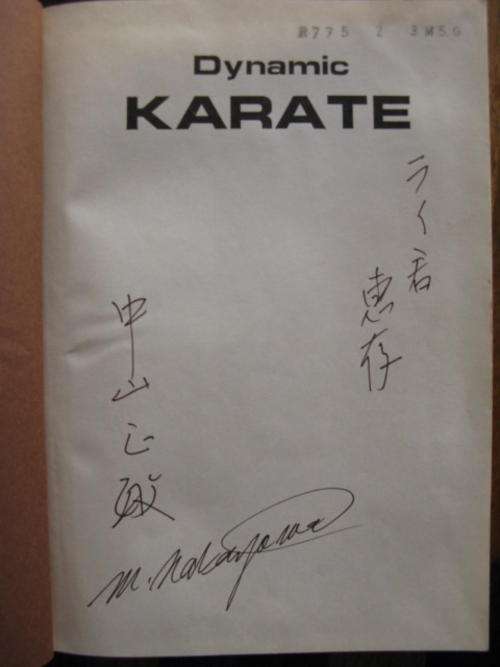 R775 2 3M50
Dynamic
KARATE
ライ君
恵存
中山正敏
M. Nakayama